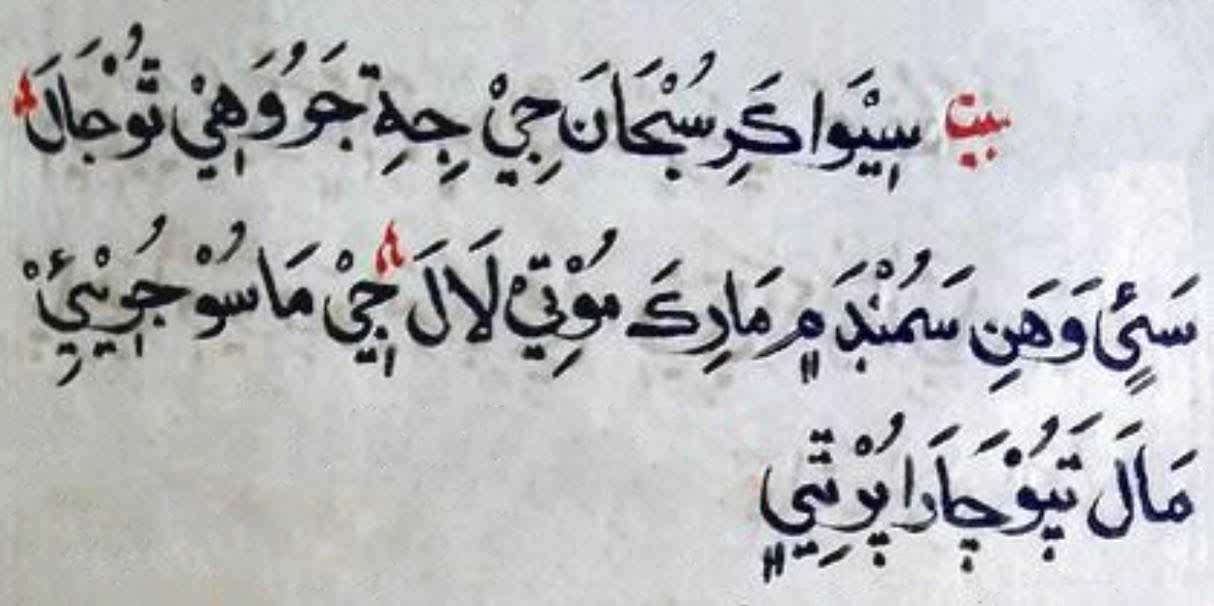 بيت سِيْوَا كَرِ سُبْحَانَ جِيْ جِةِ جَرُ وَهِيْ تُوْ جَالَ
سَئٍي وَهَنِ سَمُنْڊَ مٍ مَارِكَ مُوْتِيْ لَالَ جِيْ مَاسُوْ جُڔِيْئِيْ
مَالَ تَپُوْڃَارَا پُرْ تِيٍ